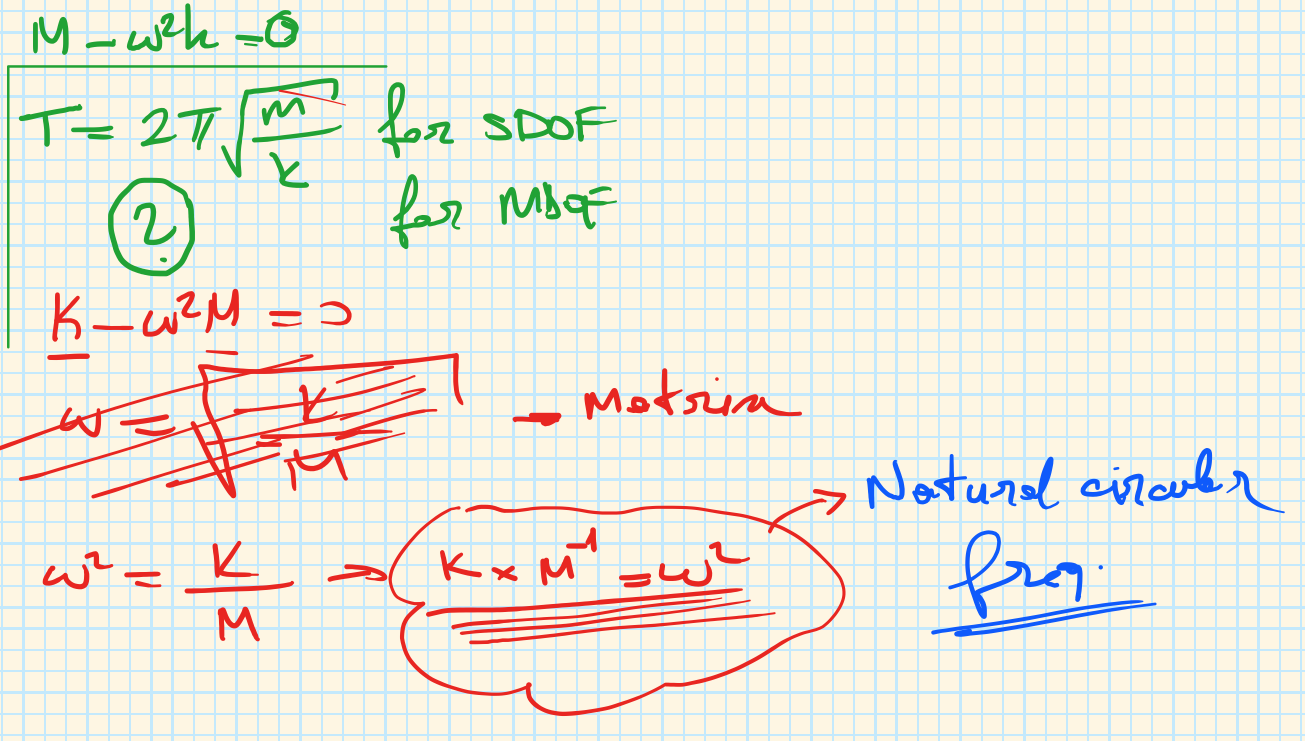 M - ω²k = 0
T = 2π√(m/k) for SDOF
? for MDOF
K - ω²M = 0
ω = √(K/M) - Matrix
ω² = K/M ⇒ K × M⁻¹ = ω² → Natural circular
freq.